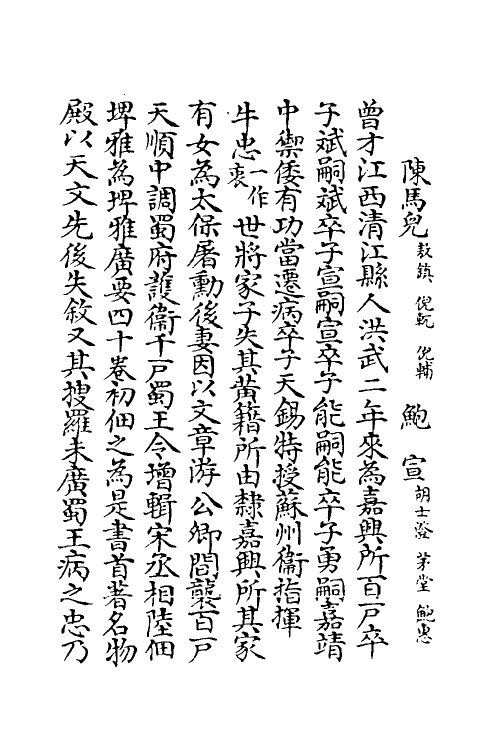 陳馬兒 敖鎮 倪𩅦 倪輔 鮑宣 胡士澄 茅堂 鮑忠
曾才江西清江縣人洪武二年來為嘉興所百戶卒
子斌嗣斌卒子宣嗣宣卒子能嗣能卒子勇嗣嘉靖
中禦倭有功當遷病卒子天錫特授蘇州衞指揮
牛忠一作衷世將家子失其黃籍所由隸嘉興所其家
有女為太保屠勳後妻因以文章游公卿間襲百戶
天順中調蜀府護衞千戶蜀王令增輯宋丞相陸佃
埤雅為埤雅廣要四十卷初佃之為是書首著名物
殿以天文先後失敘又其搜羅未廣蜀王病之忠乃